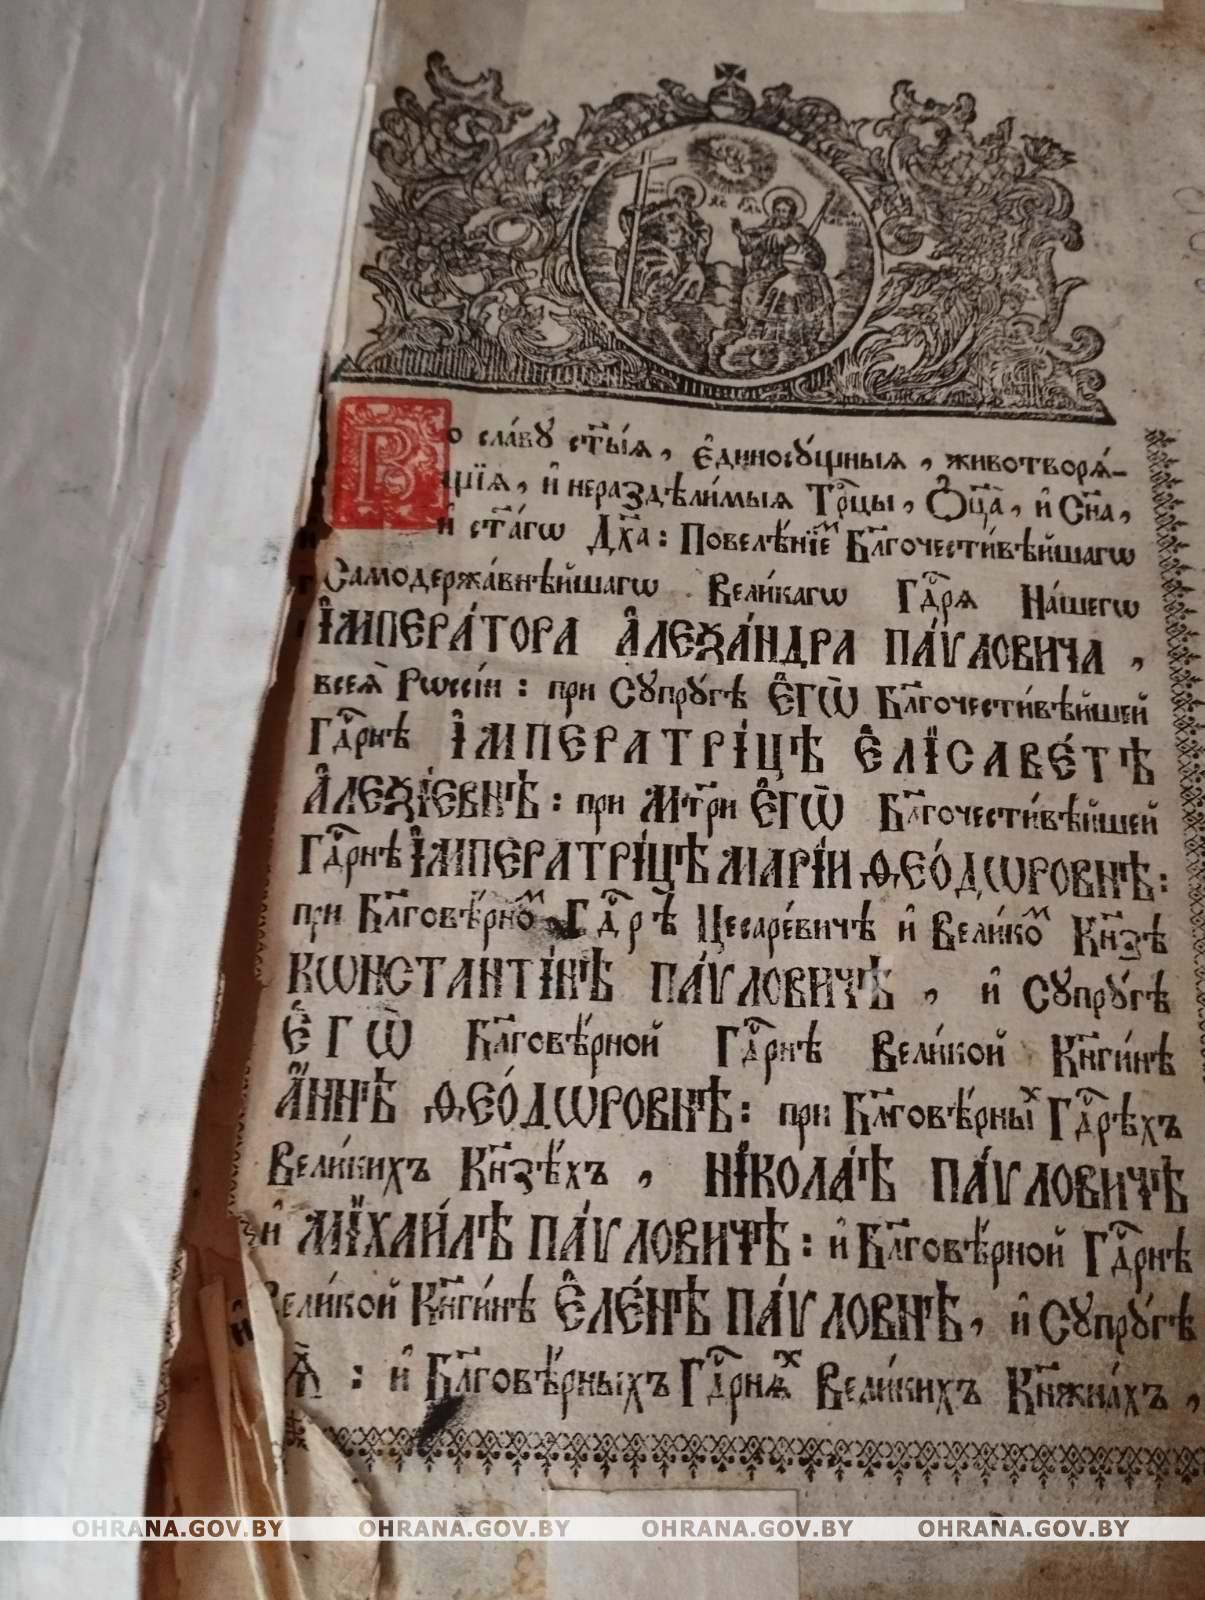 Во сла́вꙋ ст҃ы́ѧ, є҆диносꙋ́щныѧ, животворѧ́-
щїѧ, и҆ нераздѣли́мыѧ Трⷪ҇цы, Ѻ҆ц҃а̀, и҆ Сн҃а,
и҆ ст҃а́гѡ Дх҃а: Повелѣ́нїеⷨ Бл҃гочести́вѣйшагѡ
Самодержа́внѣйшагѡ Вели́кагѡ Гдⷭ҇рѧ На́шегѡ
І҆МПЕРА́ТОРА А҆ЛЕѮА́НДРА ПА́ѴЛОВИЧА,
всеѧ̀ Рѡссі́и: при Сꙋпрꙋ́гѣ Є҆ГѠ̀ Бл҃гочести́вѣйшей
Гдⷭ҇рнѣ І҆МПЕРАТРІ́ЦѢ Є҆ЛІСАВЕ́ТѢ
А҆ЛЕѮІ́ЕВНѢ: при Мт҃ри Є҆ГѠ̀ Бл҃гочести́вѣйшей
Гдⷭ҇рнѣ І҆МПЕРАТРІ́ЦѢ МАРІ́И ѲЕО́ДѠРОВНѢ:
при Бл҃говѣ́рноⷨ Гдⷭ҇рѣ Цесаре́вичѣ и҆ Вели́коⷨ Кн҃зѣ
КѠНСТАНТІ́НѢ ПА́ѴЛОВИЧѢ, и҆ Сꙋпрꙋ́гѣ
Є҆ГѠ̀ Бл҃говѣ́рной Гдⷭ҇рнѣ Вели́кой Кн҃ги́нѣ
А҆́ННѢ ѲЕО́ДѠРОВНѢ: при Бл҃говѣ́рныⷯ Гдⷭ҇рѣхъ
Вели́кихъ Кн҃зѣ́хъ, НІКОЛА́Ѣ ПА́ѴЛОВИЧѢ
и҆ МІХАИ́ЛѢ ПА́ѴЛОВИЧѢ: и҆ Бл҃говѣ́рной Гдⷭ҇рнѣ
Вели́кой Кн҃ги́нѣ Є҆ЛЕ́НѢ ПА́ѴЛОВНѢ, и҆ Сꙋпрꙋ́гѣ
Ѧ҆̀: и҆ Бл҃говѣ́рныхъ Гдⷭ҇рнѧⷯ Вели́кихъ Кн҃жна́хъ,
OHRANA.GOV.BY OHRANA.GOV.BY OHRANA.GOV.BY OHRANA.GOV.BY